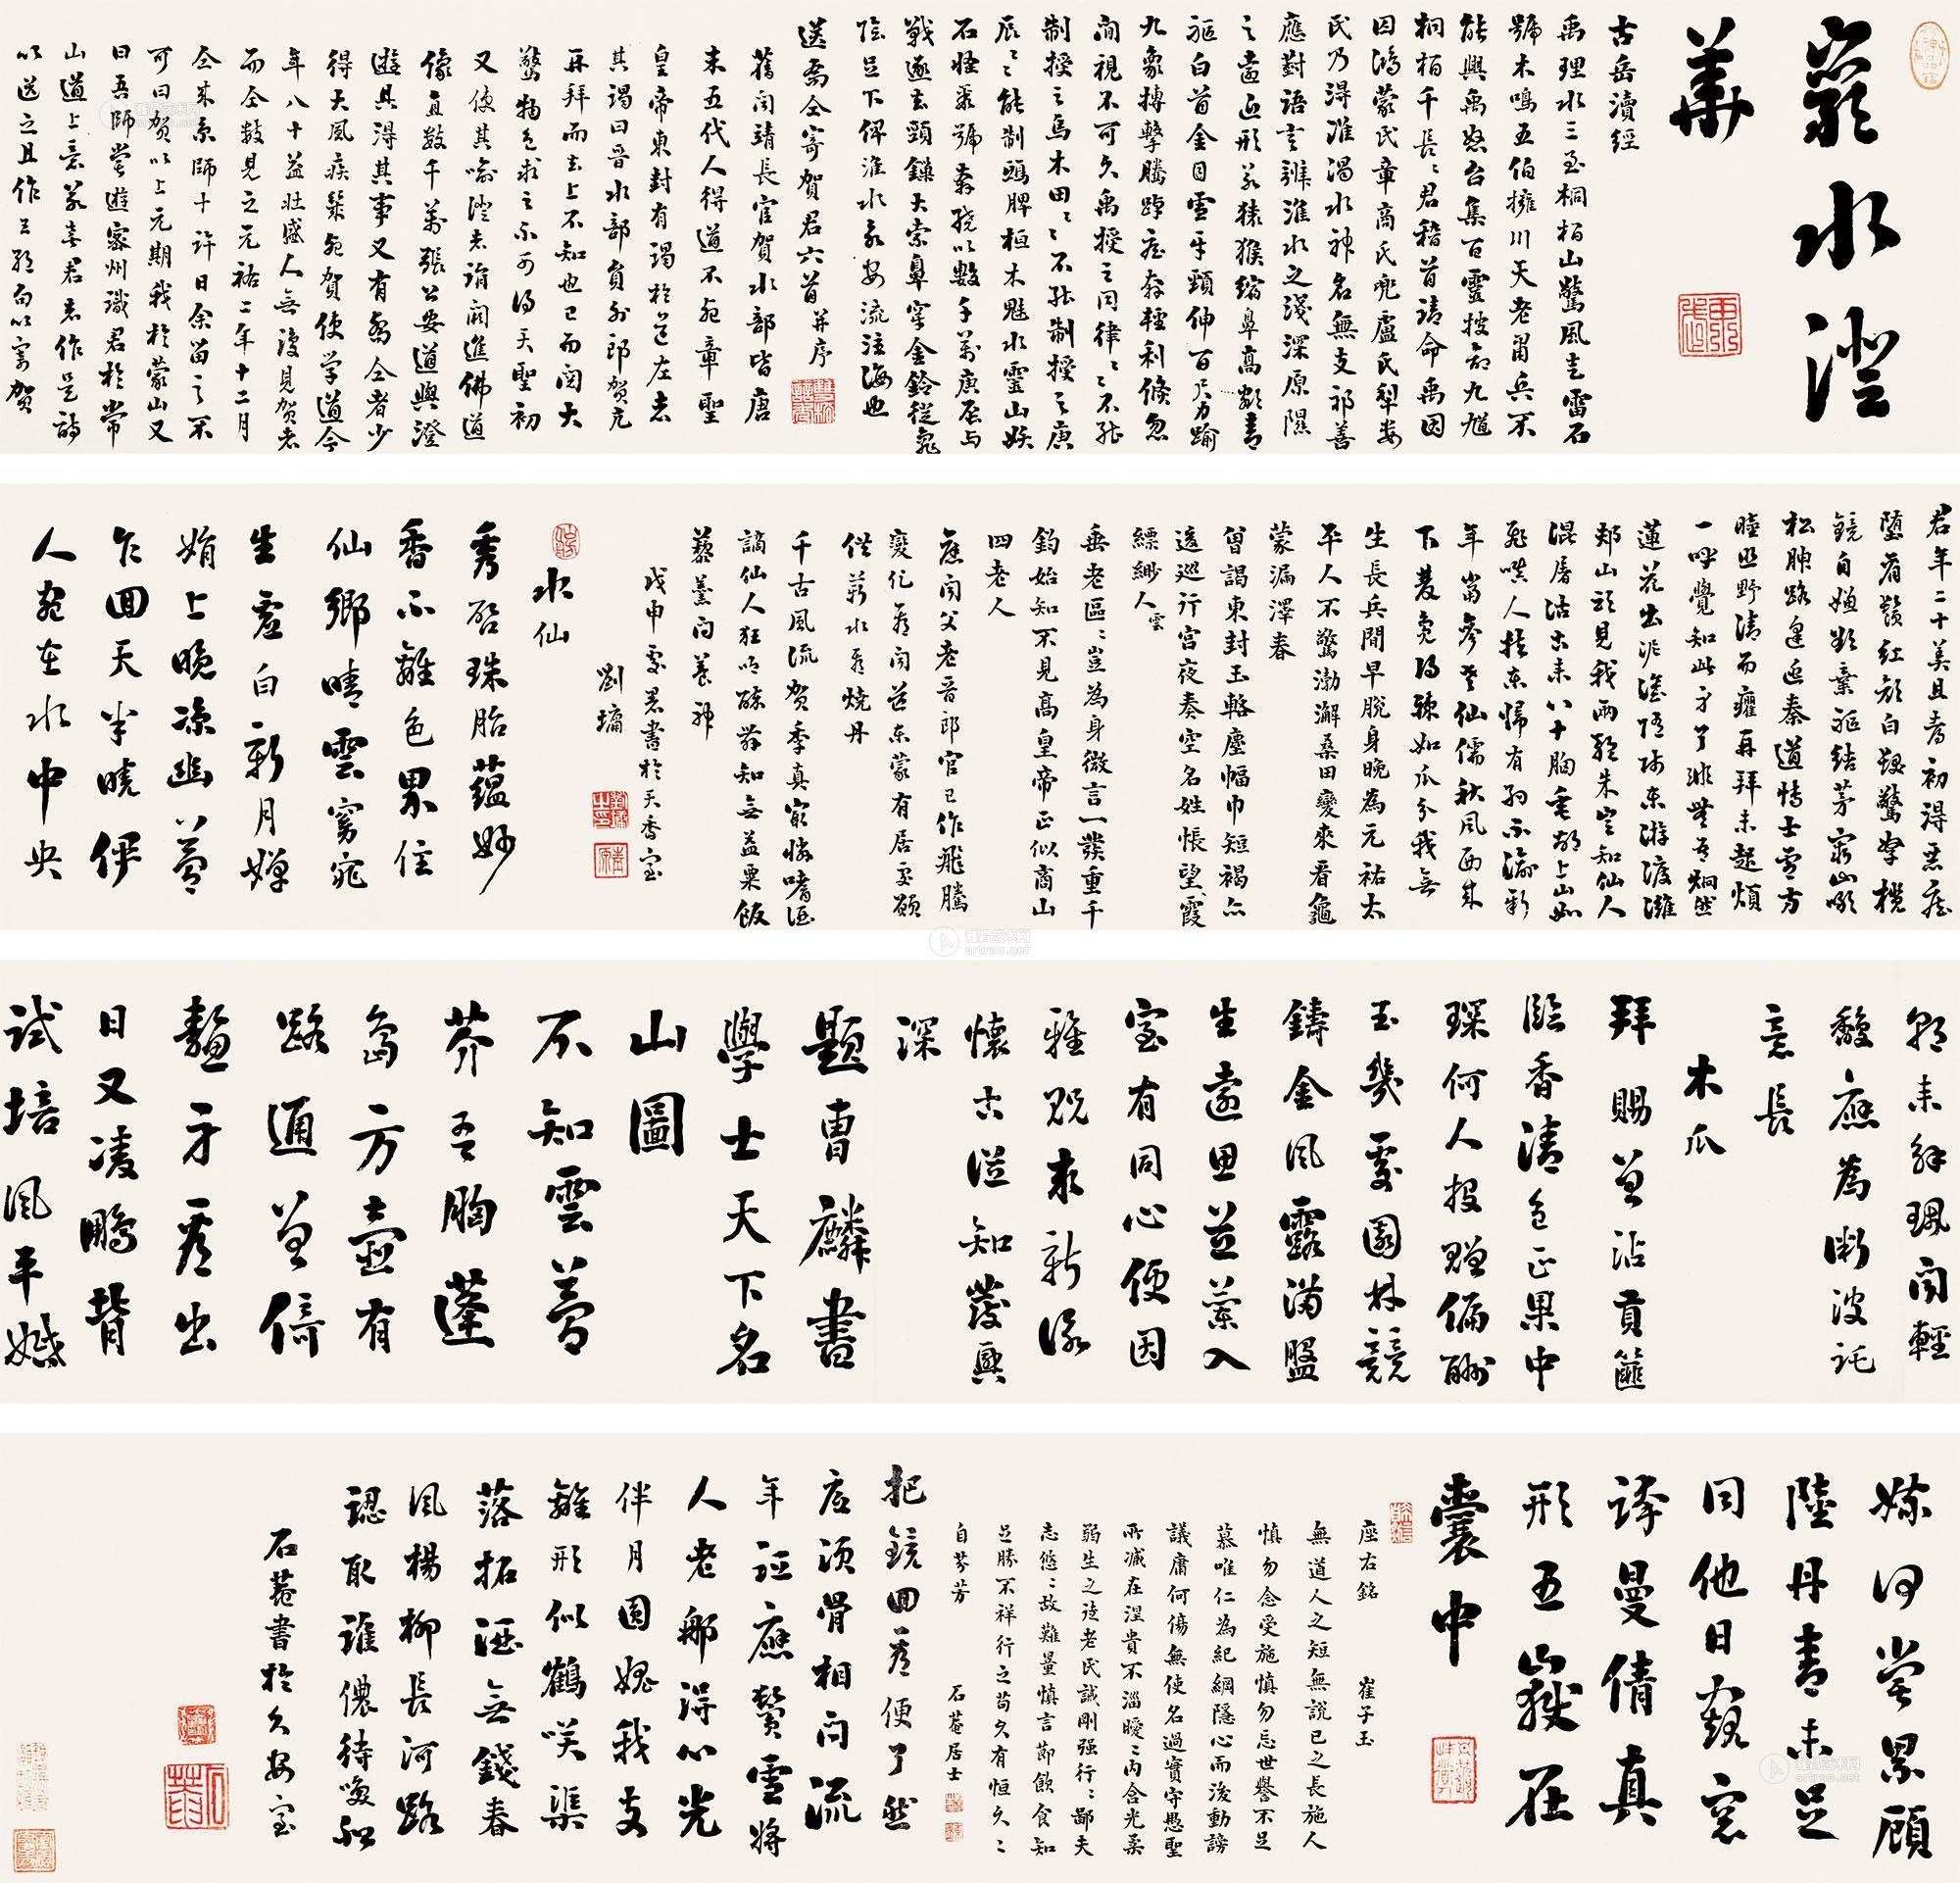 巖水澄
華
古岳瀆經
禹理水三至桐栢山驚風走雷石
號木鳴五伯擁川天老肅兵不
能興禹怒召集百靈搜命九馗
桐栢千長〻君稽首請命禹因
囚鴻蒙氏章商氏兜盧氏犁婁
氏乃得淮渦水神名無支祁善
應對語言辨淮水之淺深原隰
之遠近形若猿猴縮鼻高額青
軀白首金目雪牙頸伸百尺力踰
九象搏擊騰踔疾奔輕利倏忽
間視不可久禹授之同律〻不能
制授之烏木田〻不能制授之庚
辰〻能制鴟脾桓木魅水靈山妖
石怪叢號奔繞以數千萬庚辰与
戰逐去頸鏁大索鼻穿金鈴從龜
陰足下俾淮水永安流注海也
送喬仝寄賀君六首并序
舊聞靖長官賀水部皆唐
末五代人得道不死章聖
皇帝東封有謁於道左者
其謁曰晋水部員外郎賀亢
再拜而去上不知也已而閱大
驚物色求之不可得天聖初
又使其喻澄者詣闕進佛道
像直數千萬張公安道與澄
遊具得其事又有喬仝者少
得大風疾幾死賀使學道今
年八十益壯盛人無復見賀者
而仝數見之元祐二年十二月
仝来京師十許日余留之不
可曰賀以上元期我於蒙山又
曰吾師嘗遊密州識君於常
山道上意若喜君者作是詩
以送之且作五絶句以寄賀
君年二十美且都初得惡疾
墮眉鬚紅顏白髮驚妻孥攬
鏡自嫌欲棄軀結茅窮山啖
松腴路逢逃秦道博士雪方
瞳照野清而癯再拜未起煩
一呼覺知此身了非無吾炯然
蓮花出泥塗隨师東游渡濰
邞山頭見我兩輪朱豈知仙人
混屠沽尔来八十胸垂胡上山如
飛嗔人扶東歸有期不渝新
年當參老仙儒秋風西来
下雙鳧得棘如瓜分我無
生長兵間早脫身晚為元祐太
平人不驚渤澥桑田變來看龜
蒙漏澤春
曾謁東封玉輅塵幅巾短褐亦
逡巡行宫夜奏空名姓悵望雲霞
縹緲人
垂老區〻豈為身微言一發重千
鈞始知不見高皇帝正似商山
四老人
舊聞父老晋郎官已作飛騰
變化看聞道東蒙有居處願
供薪水看燒丹
千古風流賀季真最憐嗜酒
謫仙人狂吟醉舞知無益粟飯
藜羹问養神
戊申處暑書於天香室
劉墉
水仙
秀啓珠胎蘊妙
香不離色界住
仙鄉晴雲窈窕
生虛白新月嬋
娟上晚涼幽夢
乍回天半曉伊
人宛在水中央
朝来解珮聞輕
馥應為微波託
意長
木瓜
拜賜曾沾貢篚
臨香清色正果中
琛何人投贈偏酬
玉幾處園林競
鑄金風露滿盤
生遠思並蘭入
室有同心便因
雅貺求新詠
懷古從知發興
深
題曹麟書
學士天下名
山圖
不知雲夢
芥吾胸蓬
島方壺有
路通曾倚
鼇身看出
日又凌鵬背
試培風平嬿
嫽何嘗累顧
陸丹青未足
同他日窺窓
詩曼倩真
形五嶽在
囊中
座右銘 崔子玉
無道人之短無說己之長施人
慎勿念受施慎勿忘世譽不足
慕唯仁為紀綱隱心而後動謗
議庸何傷無使名過實守愚聖
所臧在涅貴不淄曖〻内含光柔
弱生之徒老氏誡剛强行〻鄙夫
志悠〻故難量慎言節飲食知
足勝不祥行之苟久有恒久〻
自芬芳 石菴居士
把鏡回看便了然
底須骨相问流
年証應鬢雪將
人老那得心光
伴月圓媿我支
離形似鶴咲渠
落拓酒無錢春
風楊柳長河路
認取誰儂待喚船
石菴書於久安室